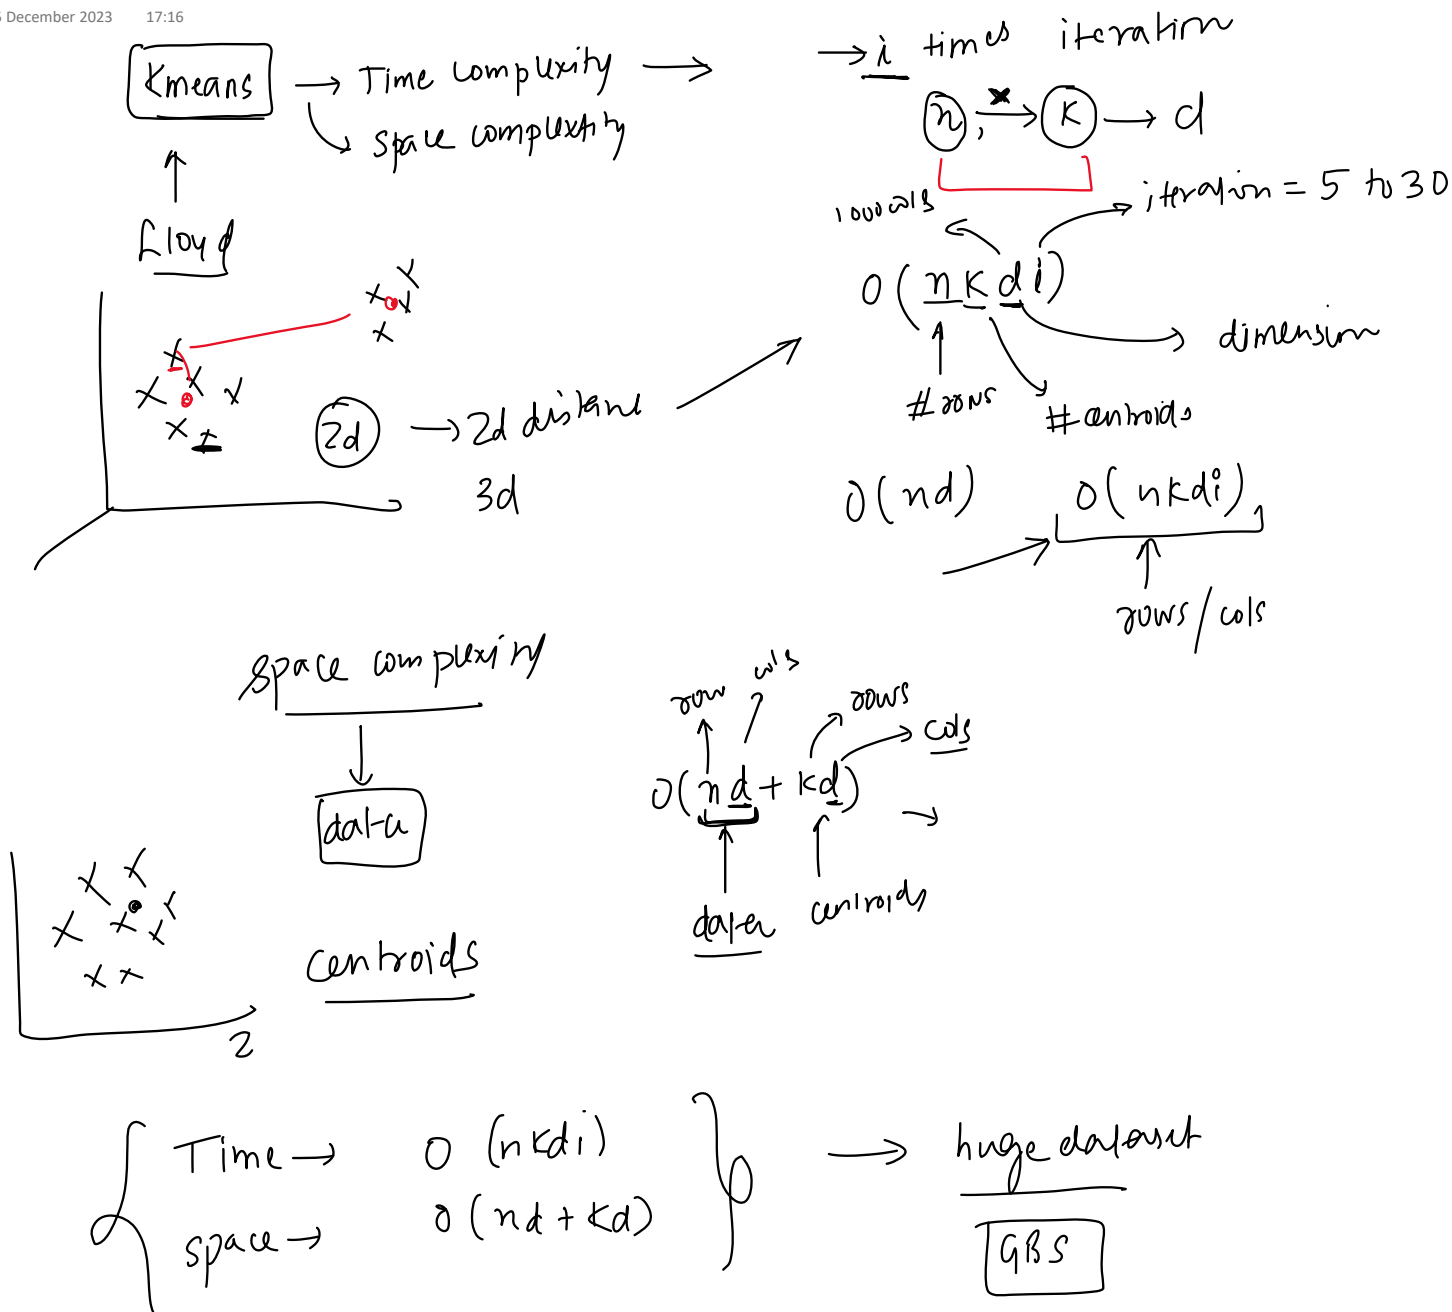 5 December 2023 17:16
Kmeans → Time complexity → → i times iteration
space complexity
n, × → K → d
Lloyd
1000 cols
iteration = 5 to 30
O(nkdi)
dimension
#rows
#centroids
2d → 2d distane
3d
O(nd) O(nkdi)
rows/cols
space complexity
row cols rows cols
O(nd + kd) →
data
data centroids
centroids
2
Time → O (nkdi) → huge dataset
space → O (nd + kd)
GBS